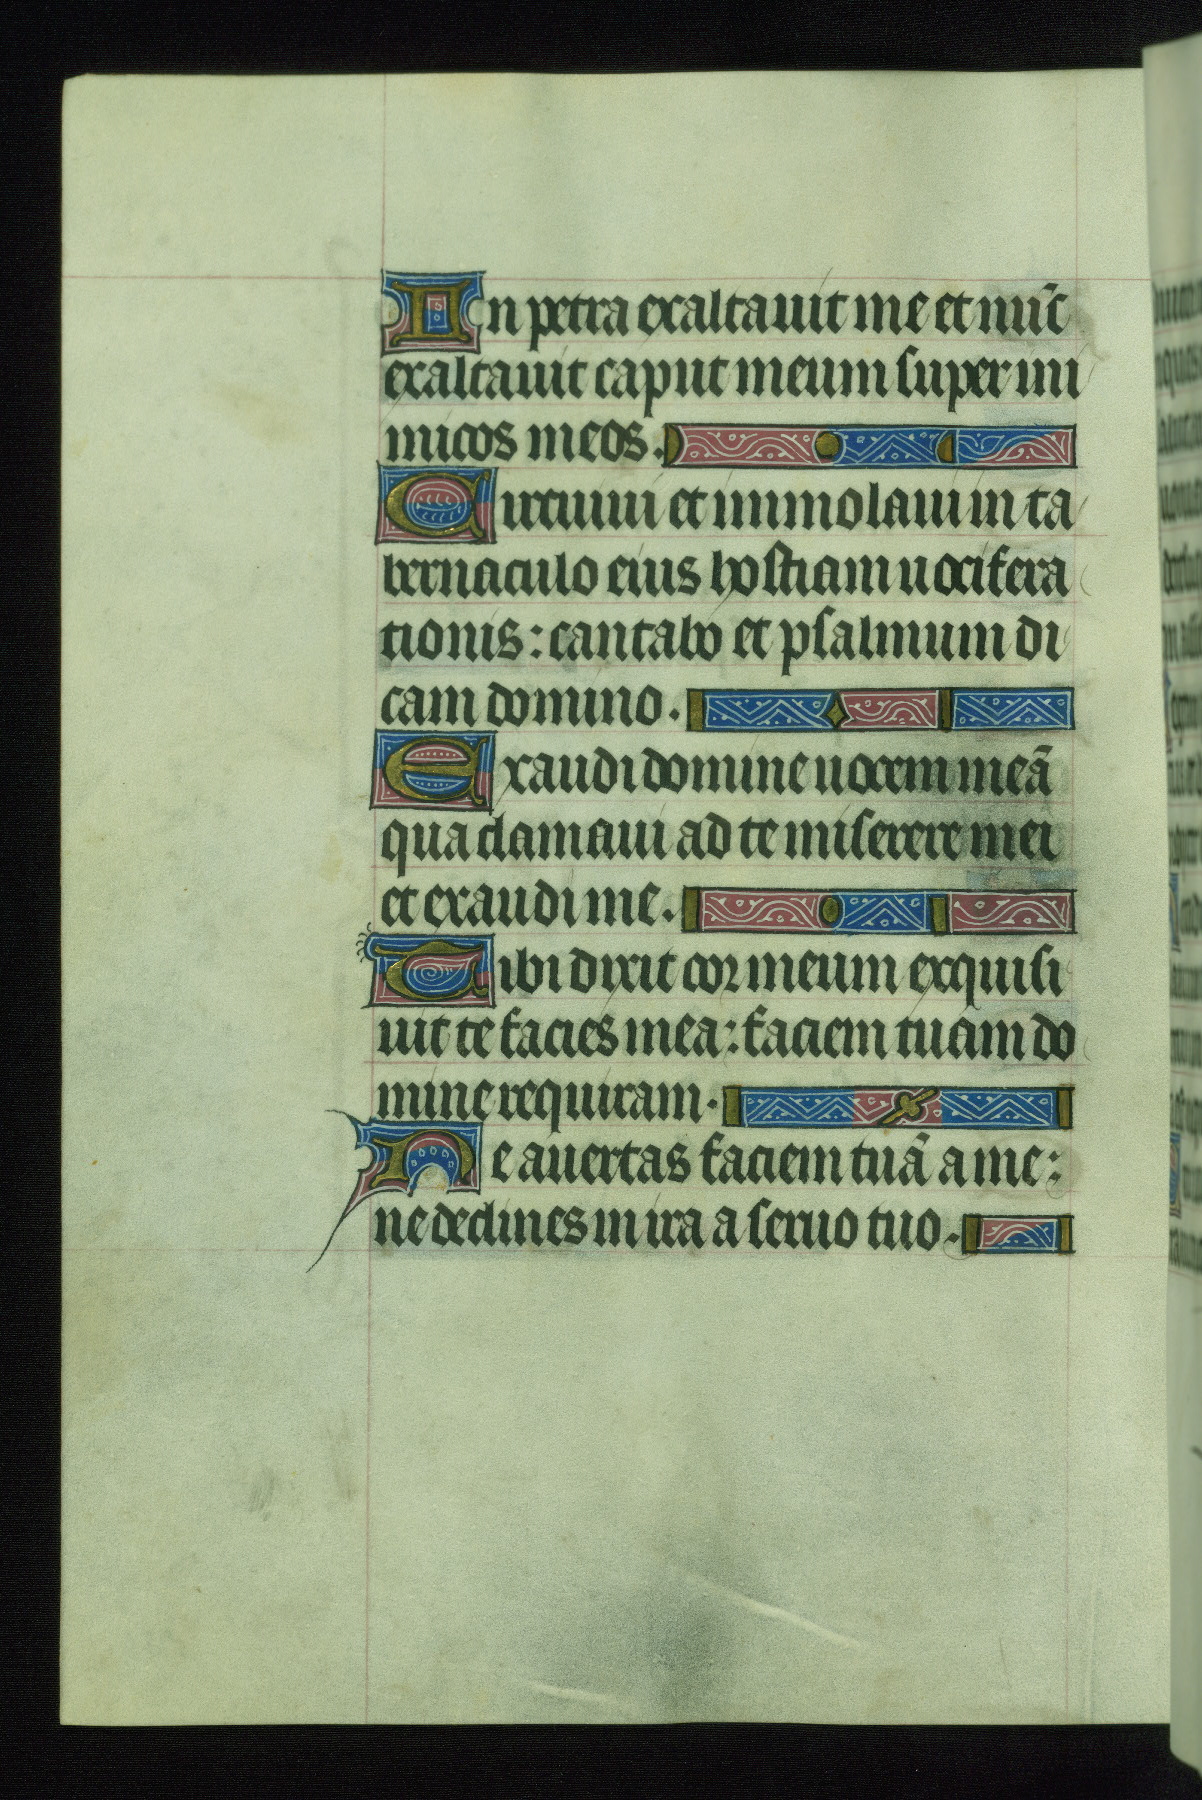 In petra exaltauit me et nūc
exaltauit caput meum super ini
micos meos.
Circuiui et immolaui in ta
bernaculo eius hostiam uocifera
tionis: cantabo et psalmum di
cam domino.
Exaudi domine uocem meā
qua clamaui ad te miserere mei
et exaudi me.
Tibi dixit cor meum exquisi
uit te facies mea: faciem tuam do
mine requiram.
Ne auertas faciem tuā a me:
ne declines in ira a seruo tuo.